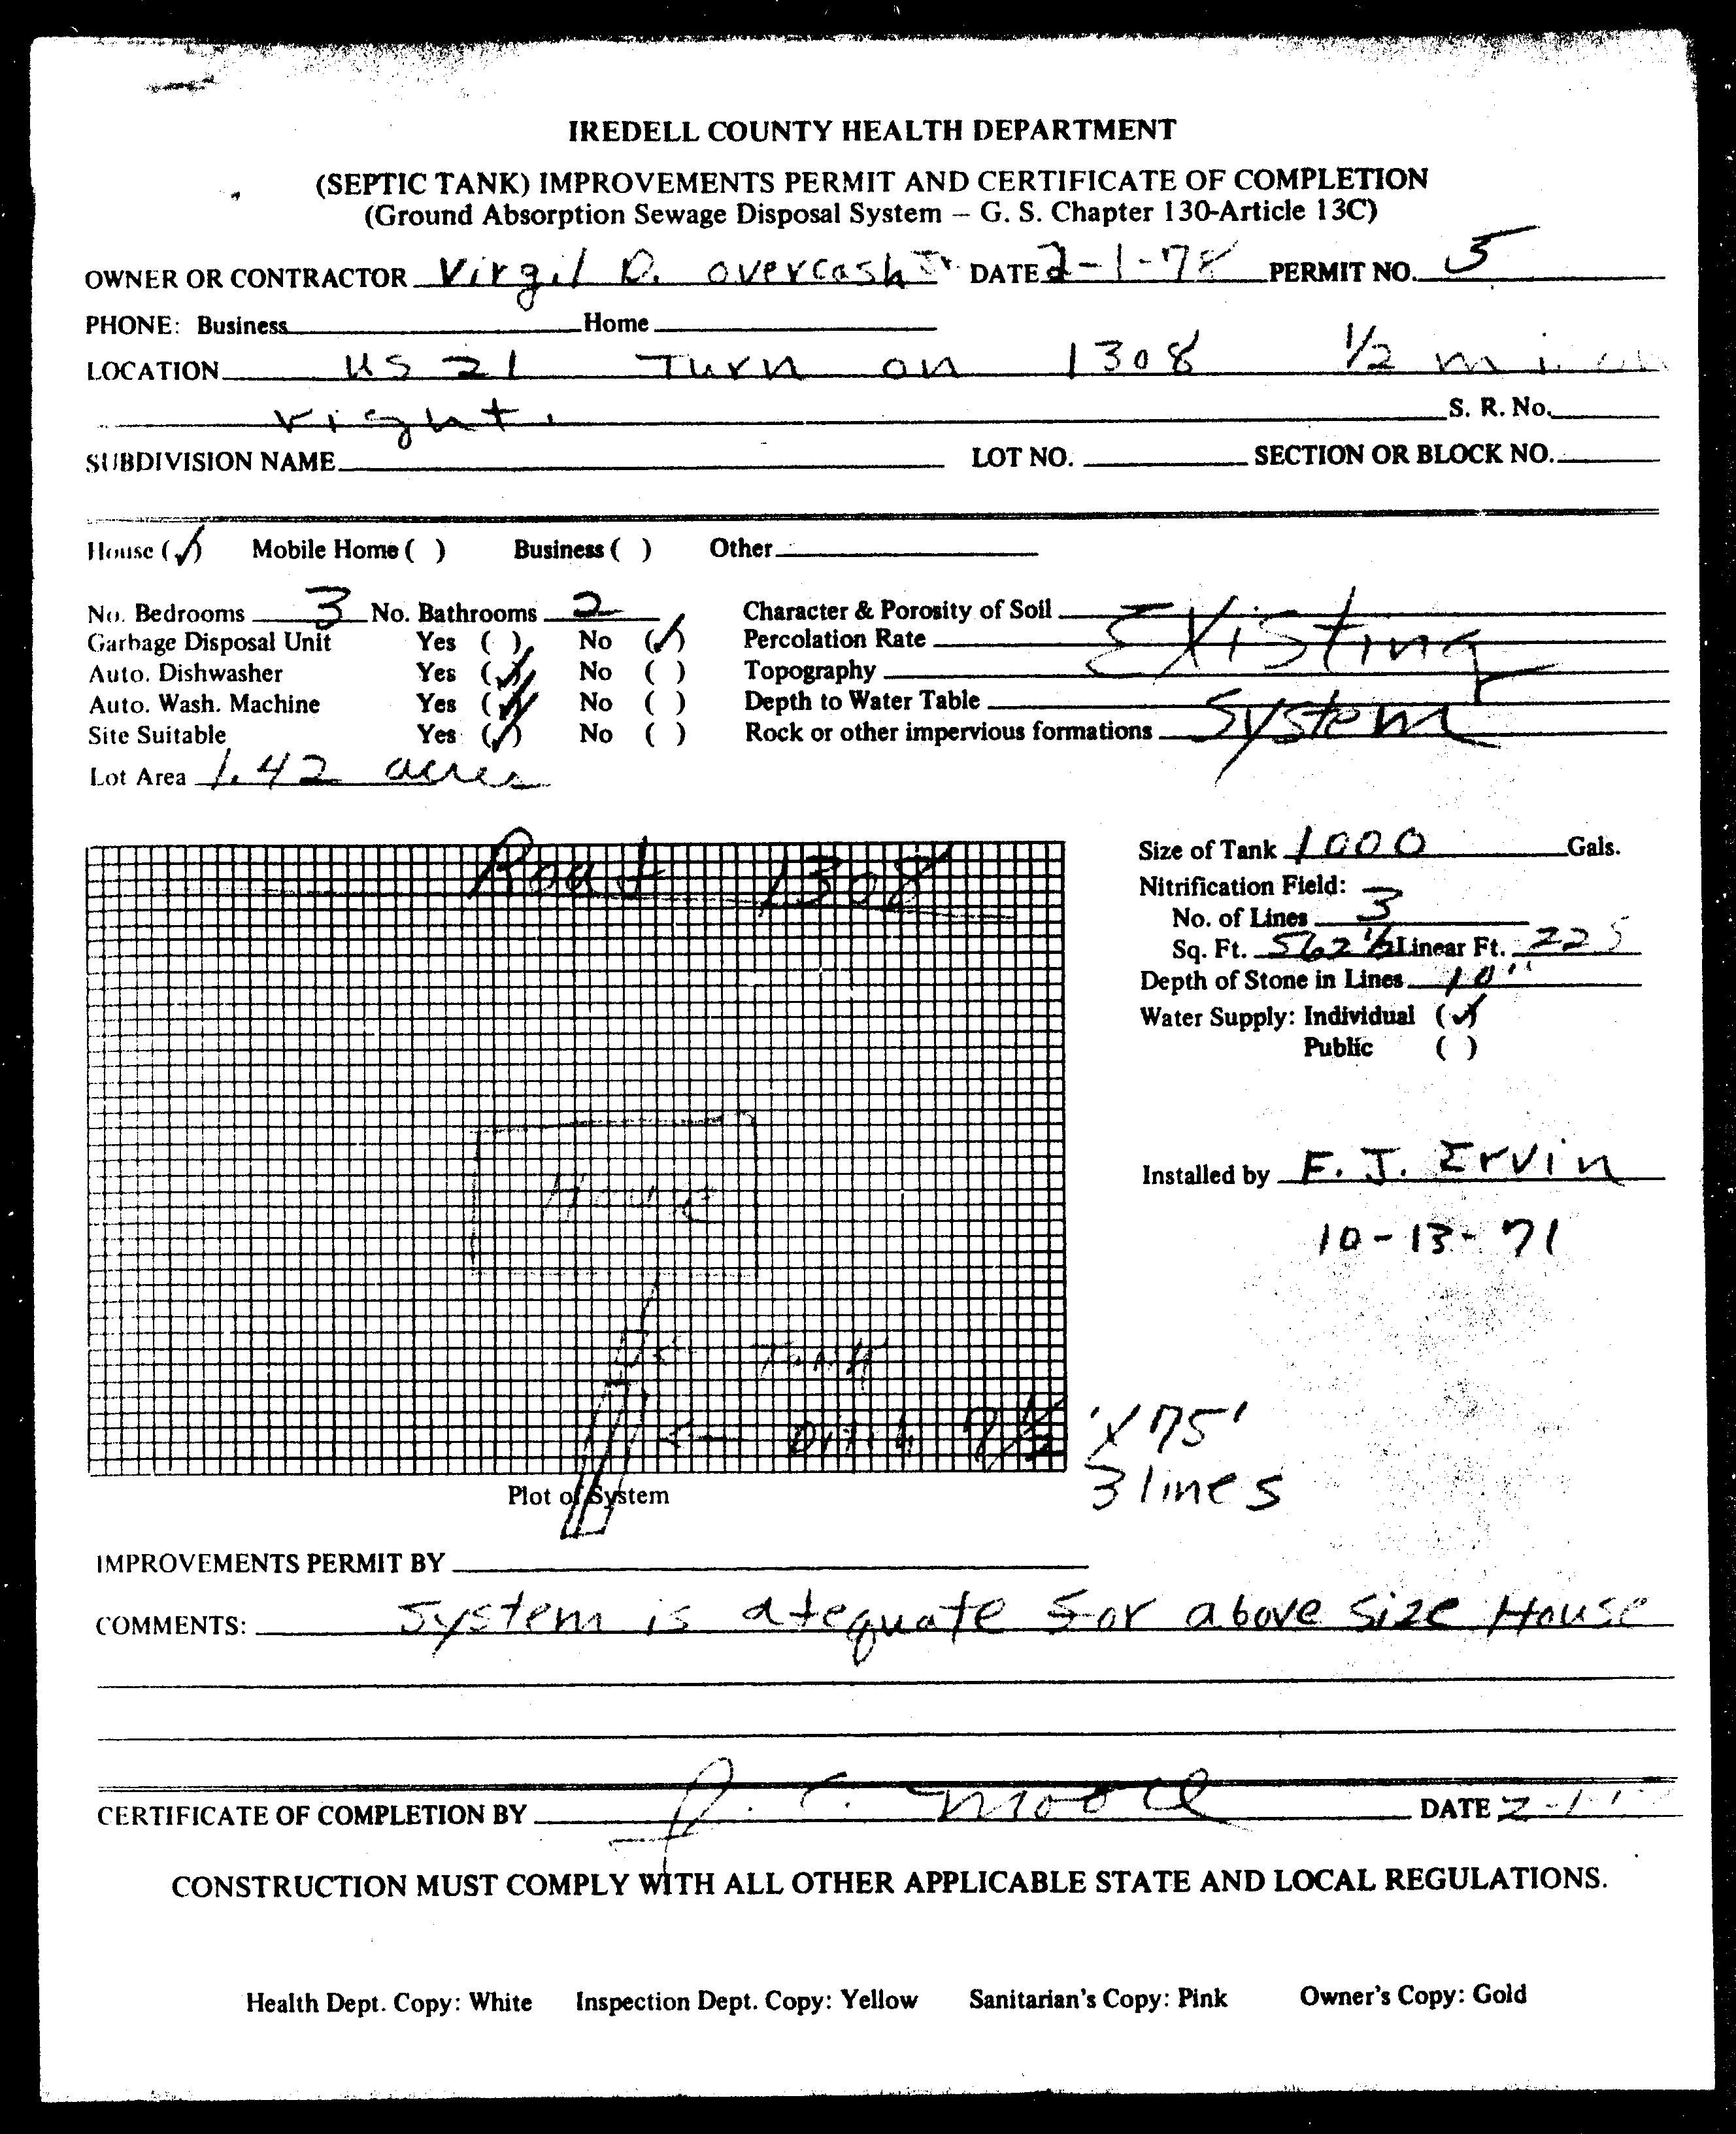 IREDELL COUNTY HEALTH DEPARTMENT
(SEPTIC TANK) IMPROVEMENTS PERMIT AND CERTIFICATE OF COMPLETION
(Ground Absorption Sewage Disposal System – G. S. Chapter 130-Article 13C)
OWNER OR CONTRACTOR Virgil D. Overcash Jr DATE 2-1-78 PERMIT NO. 5
PHONE: Business Home
LOCATION US 21 Turn on 1308 1/2 mi. on
right. S. R. No.
SUBDIVISION NAME LOT NO. SECTION OR BLOCK NO.
House (✓) Mobile Home ( ) Business ( ) Other
No. Bedrooms 3 No. Bathrooms 2 Character & Porosity of Soil Existing
Garbage Disposal Unit Yes ( ) No (✓) Percolation Rate
Auto. Dishwasher Yes (✓) No ( ) Topography
Auto. Wash. Machine Yes (✓) No ( ) Depth to Water Table System
Site Suitable Yes (✓) No ( ) Rock or other impervious formations
Lot Area 1.42 acres
Road 1308
Size of Tank 1000 Gals.
Nitrification Field:
No. of Lines 3
Sq. Ft. 562 1/2 Linear Ft. 225
Depth of Stone in Lines 10"
Water Supply: Individual (✓)
Public ( )
House
Installed by F. J. Ervin
10-13-71
Tank
Ditch 7 1/2 'X 75'
3 lines
Plot of System
IMPROVEMENTS PERMIT BY
COMMENTS: System is adequate for above size House
CERTIFICATE OF COMPLETION BY J. C. Moore DATE 2-1-
CONSTRUCTION MUST COMPLY WITH ALL OTHER APPLICABLE STATE AND LOCAL REGULATIONS.
Health Dept. Copy: White Inspection Dept. Copy: Yellow Sanitarian's Copy: Pink Owner's Copy: Gold